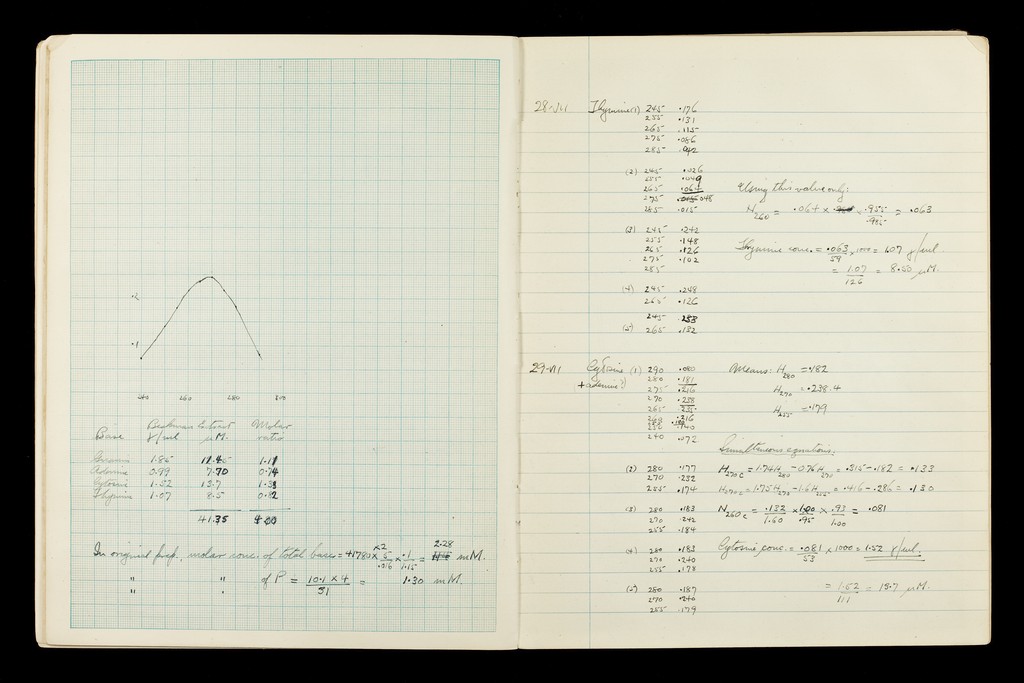 .2
.1
240 260 280 290
Base Beckman γ/ml Extract μM. Molar ratio
Guanine 1.85 11.45 1.11
Adenine 0.99 7.70 0.74
Cytosine 1.52 13.7 1.33
Thymine 1.07 8.5 0.82
41.35 4.00
In original prep. molar conc. of total base = 2.28 mM.
" " of P = 10.1 x 4 / 31 = 1.30 mM.
28-VII Thymine (1) 245 .176
255 .131
265 .115
275 .086
285 .042
(2) 245 .026
255 .049
265 .064
275 .048
285 .015
Using this value only:
H260 = .064 x .955 / .985 = .063
(3) 245 .242
255 .148
265 .126
275 .102
285
Thymine conc. = .063 / 59 x 1000 = 1.07 γ/ml
= 1.07 / 126 = 8.50 μM.
(4) 245 .248
265 .126
245 .253
(5) 265 .132
29-VII Cytosine (1) 290 .080
(+ adenine?) 280 .181
275 .216
270 .238
265 .235
260 .216
240 .072
Means: H280 = .182
H270 = .238.4
H255 = .179
Simultaneous equations:
(2) 280 .177
270 .232
255 .174
H270c = 1.75H270 - 1.6H255 = .416 - .286 = .130
(3) 280 .183
270 .242
255 .184
H260c = .132 / 1.60 x 1.00 / .95 x .93 / 1.00 = .081
(4) 280 .183
270 .240
255 .178
Cytosine conc. = .081 / 53 x 1000 = 1.52 γ/ml.
= 1.52 / 111 = 13.7 μM.
(5) 280 .187
270 .240
255 .179